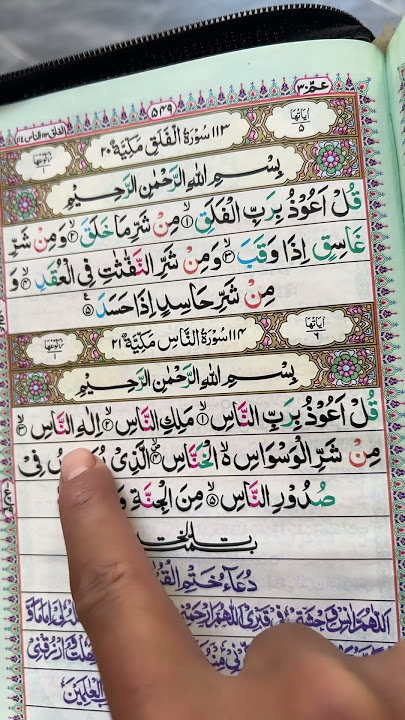 عمّ ٣٠
٥٤٩
الفلق ١١٣ الناس ١١٤
اٰیَاتُهَا ٥
١١٣ سُوْرَةُ الْفَلَقِ مَكِّيَّةٌ ٢٠
رُكُوْعُهَا ١
بِسْمِ اللّٰهِ الرَّحْمٰنِ الرَّحِيْمِ
قُلْ اَعُوْذُ بِرَبِّ الْفَلَقِ ۙ‏﴿۱﴾ مِنْ شَرِّ مَا خَلَقَ ۙ‏﴿۲﴾ وَمِنْ شَرِّ
غَاسِقٍ اِذَا وَقَبَ ۙ‏﴿۳﴾ وَمِنْ شَرِّ النَّفّٰثٰتِ فِى الْعُقَدِ ۙ‏﴿۴﴾ وَ
مِنْ شَرِّ حَاسِدٍ اِذَا حَسَدَ ﴿۵﴾
اٰیَاتُهَا ٦
١١٤ سُوْرَةُ النَّاسِ مَكِّيَّةٌ ٢١
رُكُوْعُهَا ١
بِسْمِ اللّٰهِ الرَّحْمٰنِ الرَّحِيْمِ
قُلْ اَعُوْذُ بِرَبِّ النَّاسِ ۙ‏﴿۱﴾ مَلِكِ النَّاسِ ۙ‏﴿۲﴾ اِلٰهِ النَّاسِ ۙ‏﴿۳﴾
مِنْ شَرِّ الْوَسْوَاسِ ۙ۬ الْخَنَّاسِ ۙ‏﴿۴﴾ الَّذِىْ فِىْ
صُدُوْرِ النَّاسِ ۙ‏﴿۵﴾ مِنَ الْجِنَّةِ وَ
دُعَآءُ خَتْمِ
اَللّٰهُمَّ اٰنِسْ وَحْشَتِىْ فِىْ قَبْرِىْ اَللّٰهُمَّ ارْحَمْنِىْ